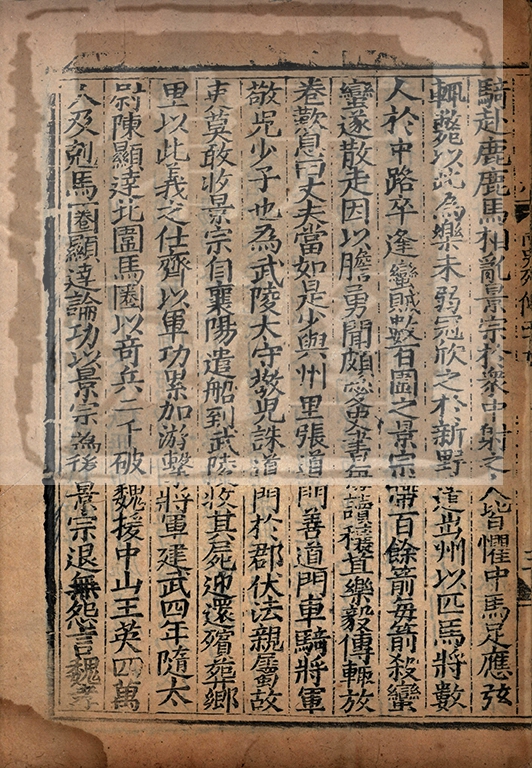 騎赴鹿鹿馬相亂景宗於衆中射之人皆懼中馬足應弦
輒斃以此為樂未弱冠欣之於新野遣出州以匹馬將數
人於中路卒逢蠻賊數百圍之景宗帶百餘箭每箭殺蠻
蠻遂散走因以膽勇聞頗愛史書每讀穰苴樂毅傳輒放
卷歎息曰丈夫當如是少與州里張道門善道門車騎將軍
敬児少子也為武陵太守敬児誅道門於郡伏法親屬故
吏莫敢收景宗自襄陽遣船到武陵收其屍迎還殯葬鄉
里以此義之仕齊以軍功累加游擊將軍建武四年隨太
尉陳顯達北圍馬圈以奇兵二千破魏援中山王英四萬
人及剋馬圈顯達論功以景宗為後景宗退無怨言魏孝